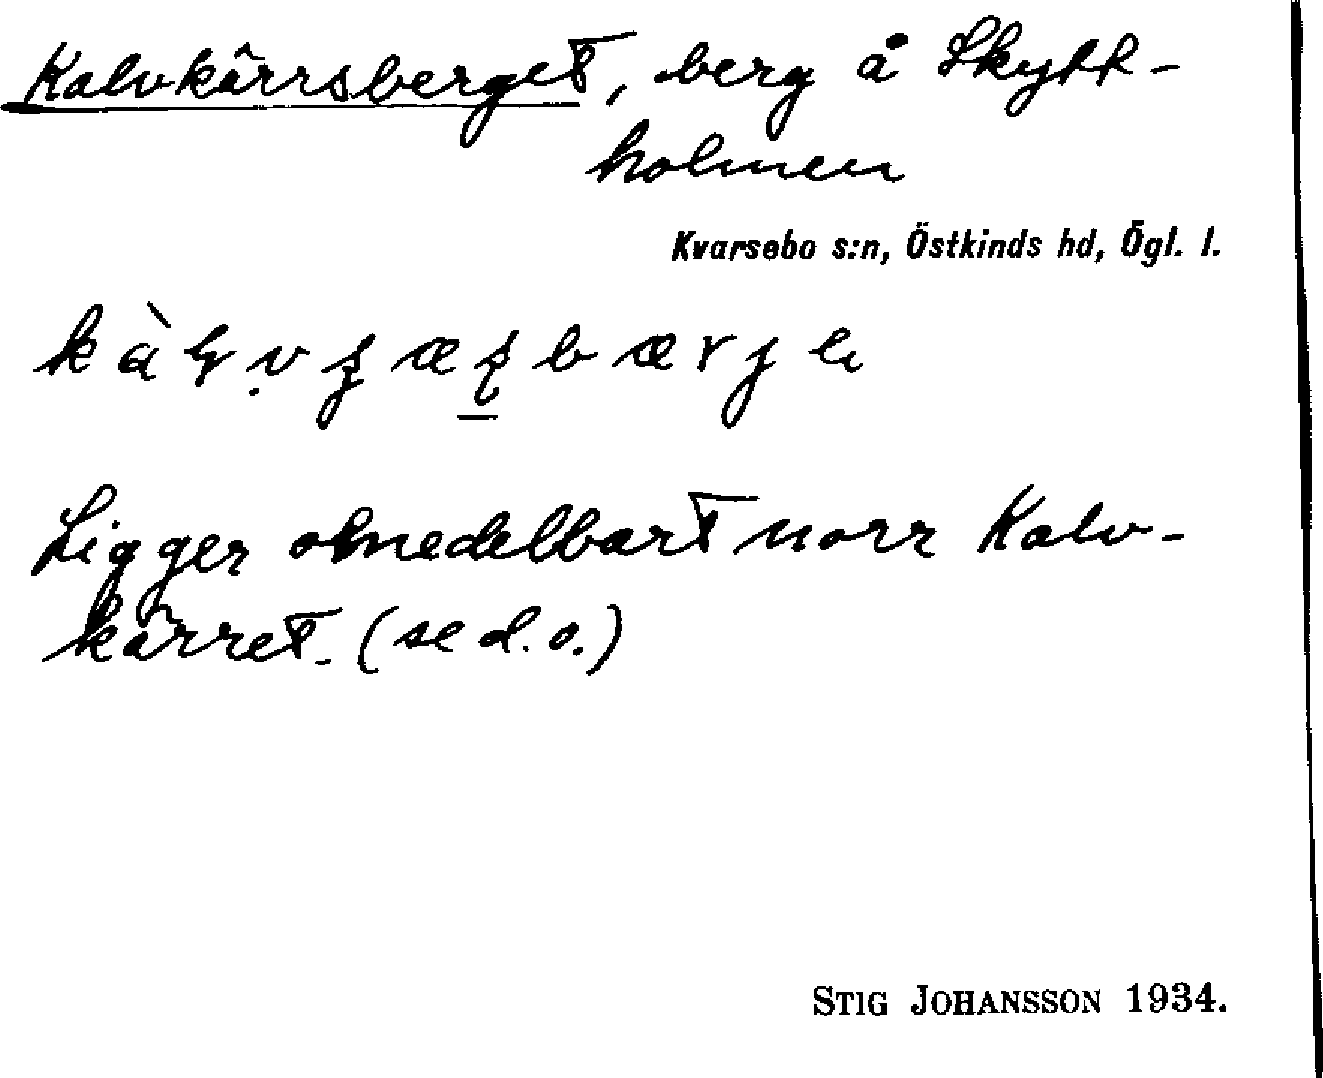 Kalvkärrsberget, berg å Skytt-
holmen
Kvarsebo s:n, Östkinds hd, Ögl. l.
Ligger omedelbart norr Kalv-
kärret. (se d. o.)
STIG JOHANSSON 1934.